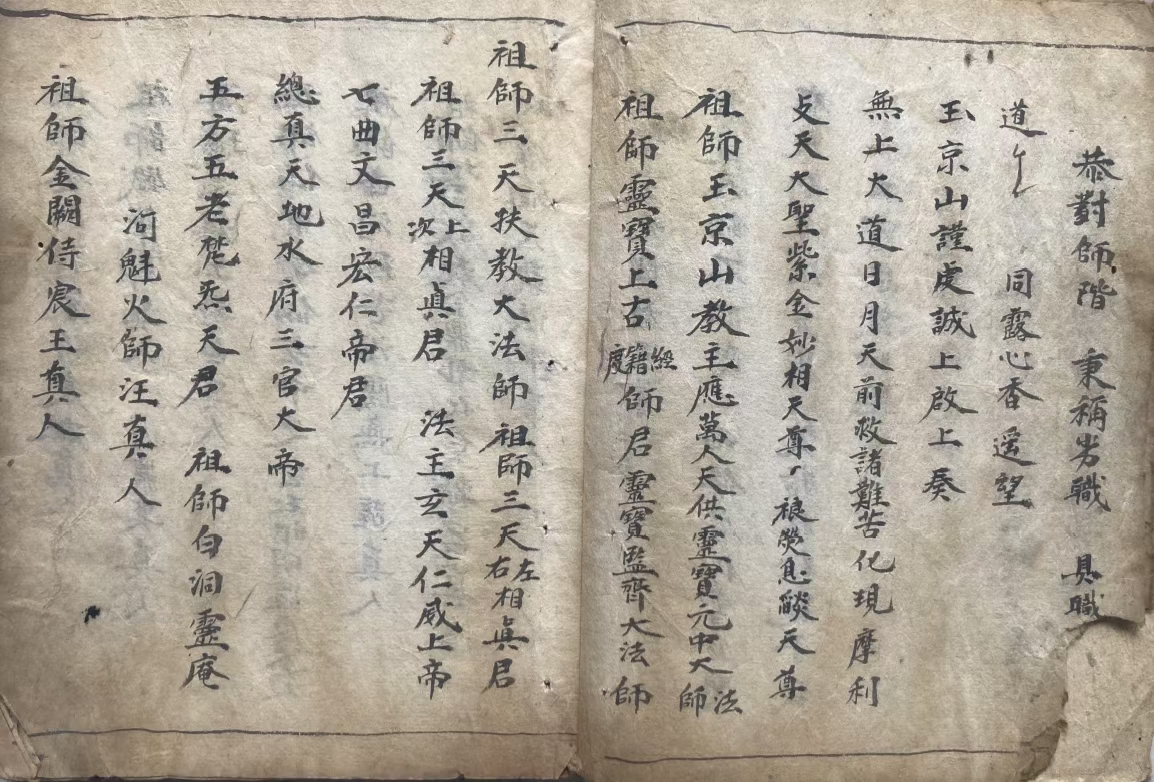 恭對師階　秉稱劣職　具職
道　同露心香遥望
玉京山謹虔誠上啟上奏
無上大道日月天前救諸難苦化現摩利
支天大聖紫金妙相天尊、禳熒息燄天尊
祖師玉京山教主應萬人天供靈寶元中大法師
祖師靈寶上古經籍度師君靈寶監齊大法師
祖師三天扶教大法師祖師三天左右相真君
祖師三天上次相真君　法主玄天仁威上帝
七曲文昌宏仁帝君
總真天地水府三官大帝
五方五老梵炁天君　祖師白洞靈庵
河魁火師汪真人
祖師金闕侍宸王真人